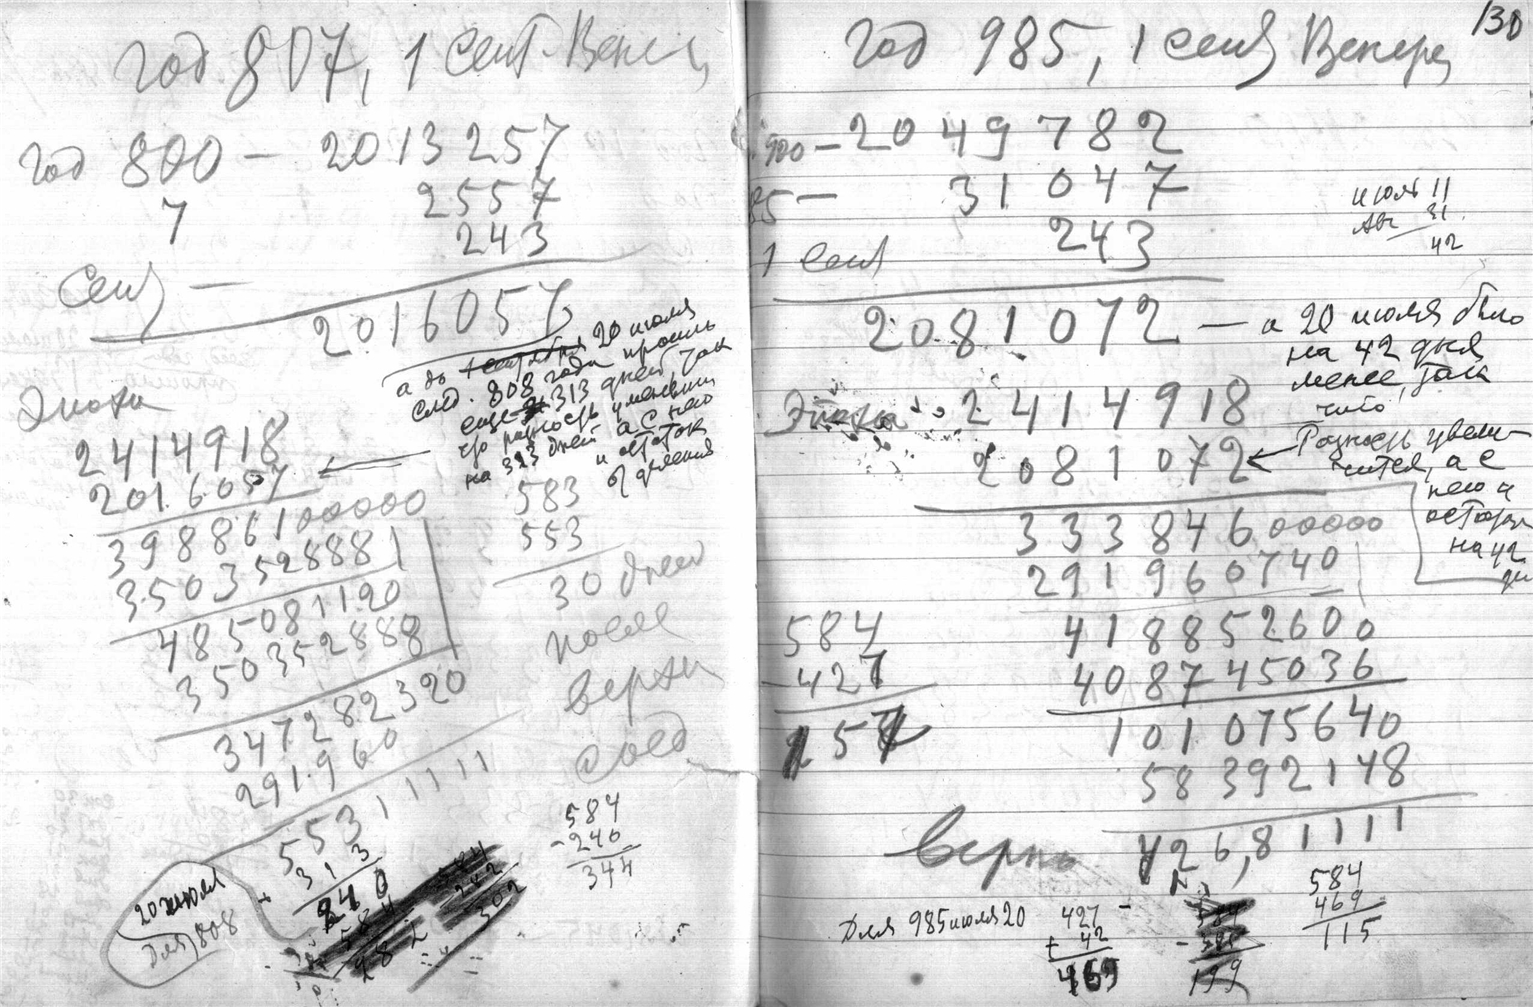 год 807, 1 сент. Венец
год 800 — 2013257
7 2557
243
Сент —
2016057
а до 1 сентября 20 июля
след. 808 года прошло
еще 313 дней, так
что разность уменьши
на 313 дней а с нею
и остаток
от деления
Эпоха
2414918
2016057
39886100000
3503528881
485081120
350352888
347282320
291960
553,11111
313
240
583
553
30 дней
после
верхн
соед
584
-240
344
20 июля
Для 808
130
год 985, 1 сент Венер
900 — 2049782
85 — 31047
1 сент 243
2081072 — а 20 июля было
на 42 дня
менее, так
что
июля 11
Авг 31
42
Эпоха 2414918
2081072
Разность увели-
чится, а с
нею и
остаток
на 42
дн
33384600000
291960740
418852600
408745036
101075640
58392148
426,81111
584
-427
157
верно
Для 985 июля 20
427
+ 42
469
199
584
469
115